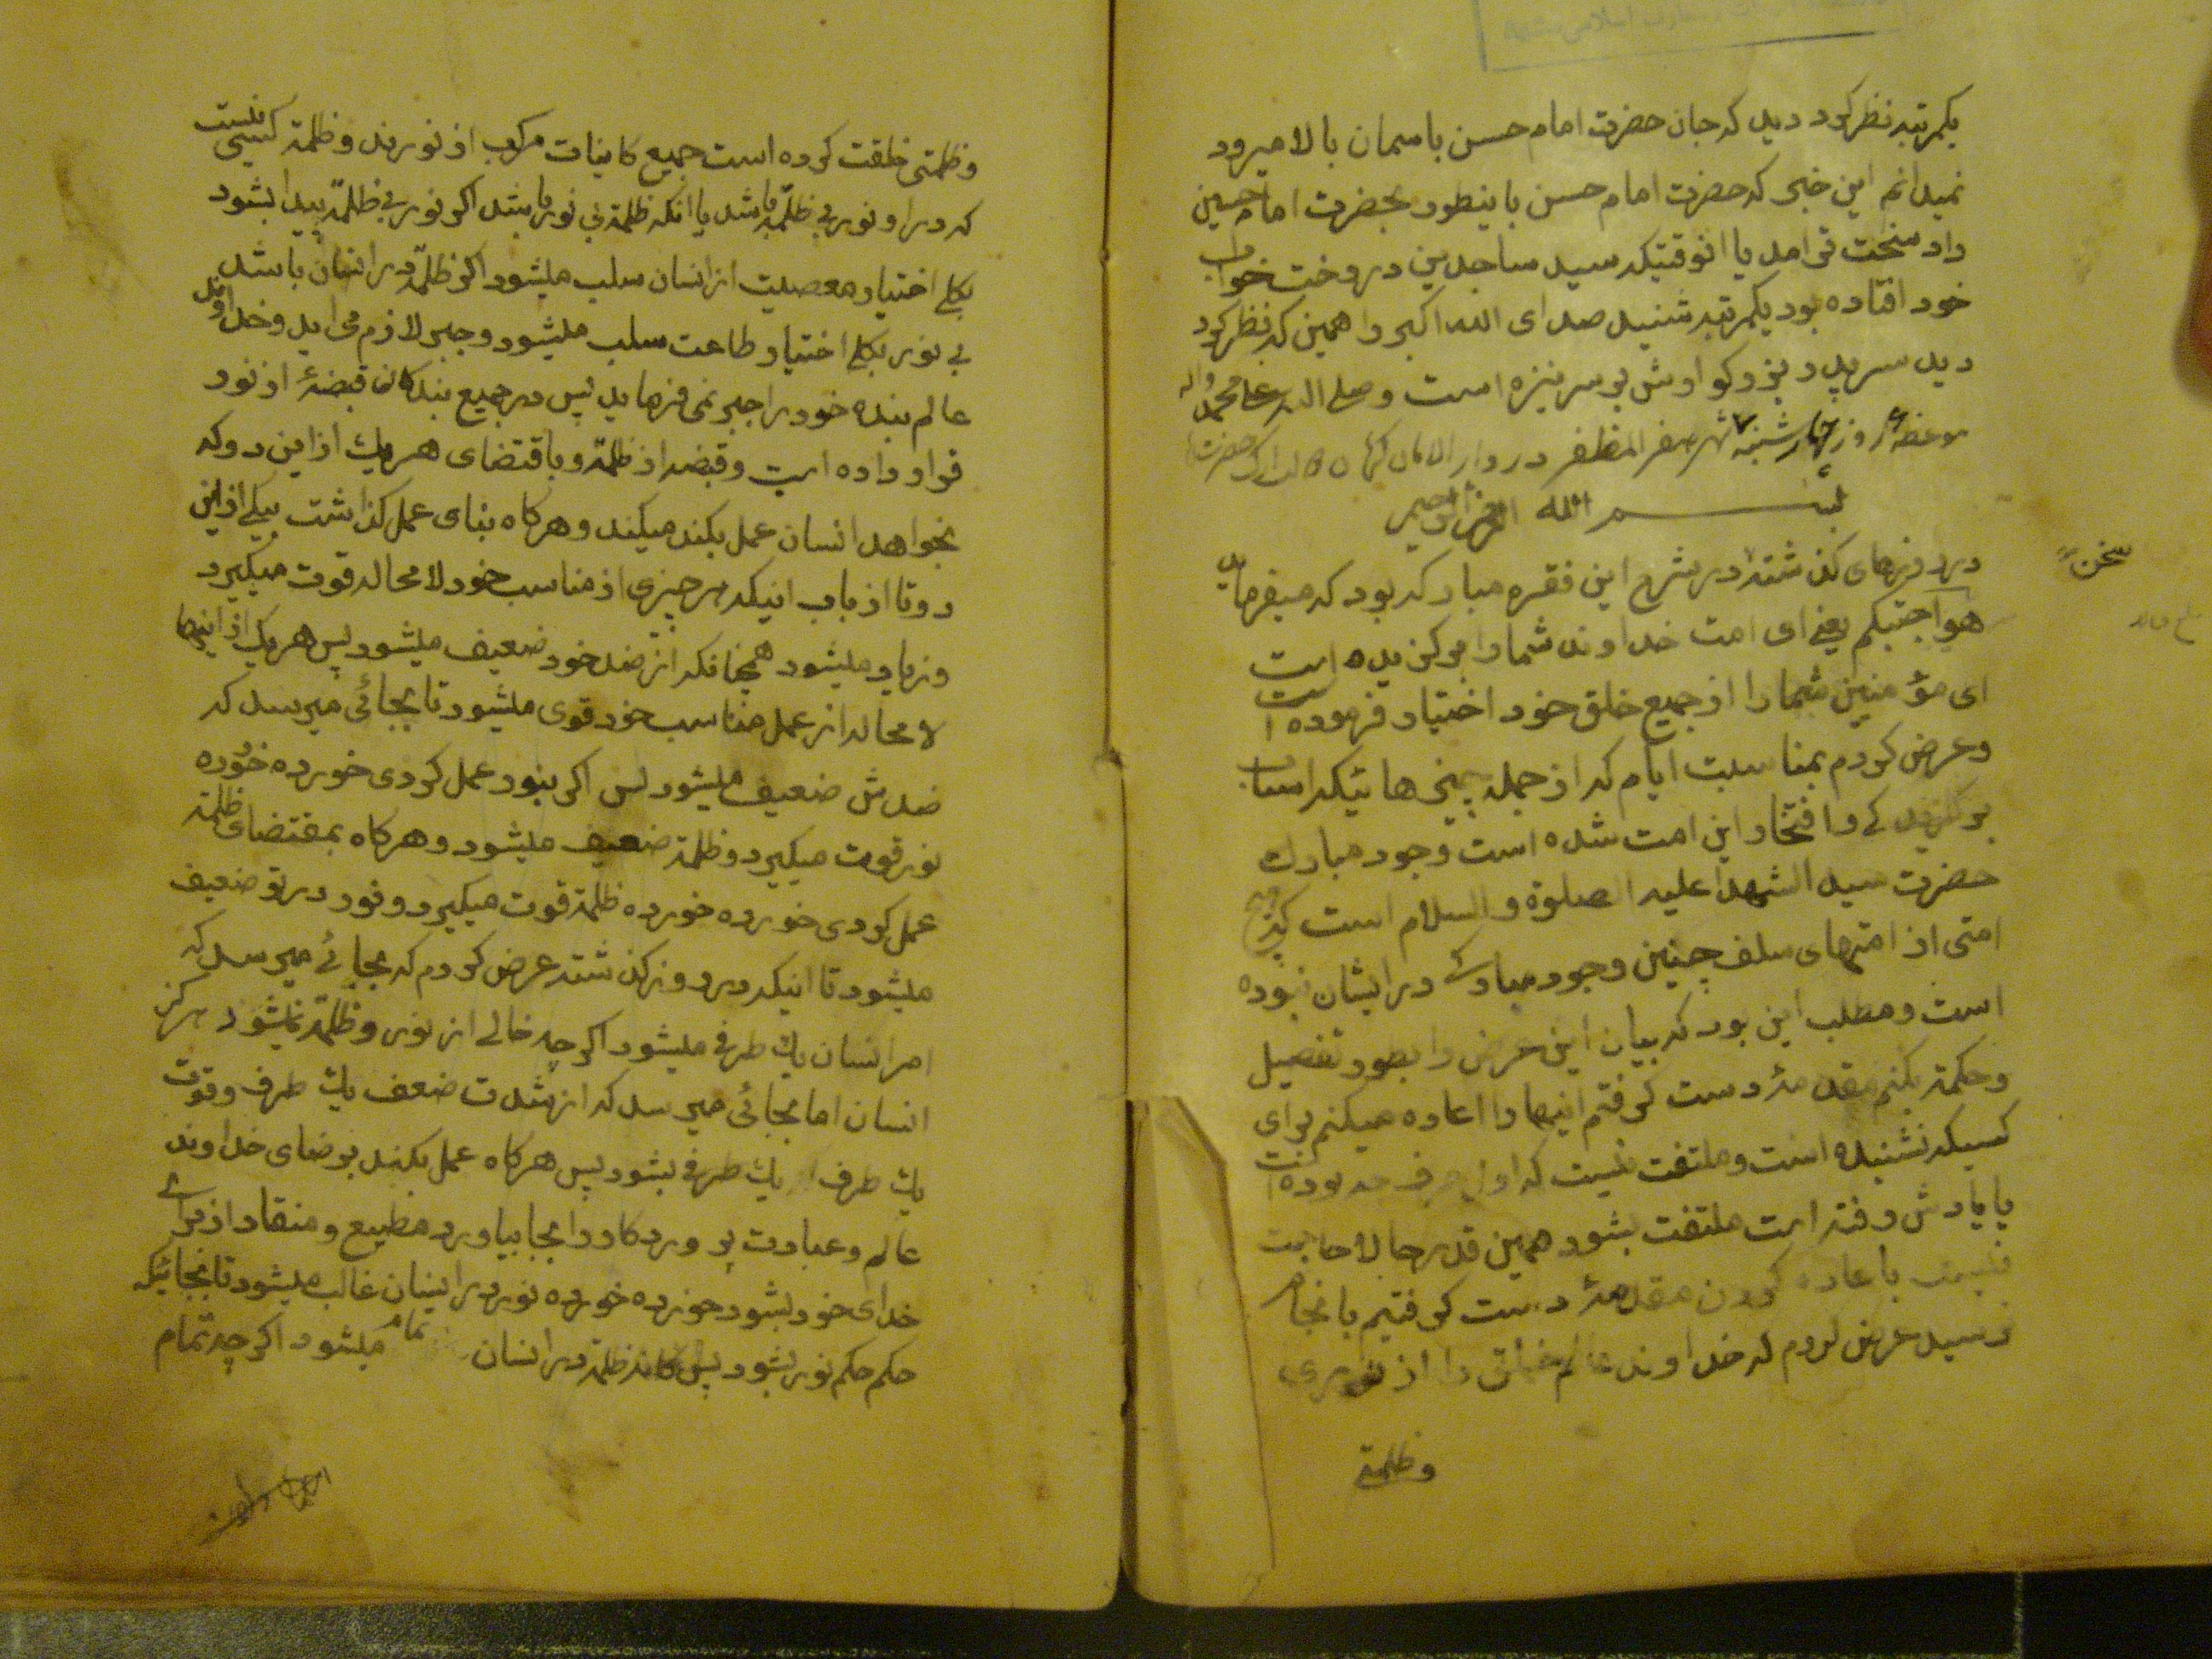 یکمرتبه نظر کرد دید که جان حضرت امام حسن باسمان بالا میرود
نمیدانم این خبری که حضرت امام حسن باینطور بحضرت امام حسین
داد سخت تر امد یا انوقتیکه سید ساجدین در رخت خواب
خود افتاده بود یکمرتبه شنید صدای الله اکبر را همین که نظر کرد
دید سر پدر بزرکوارش بر سر نیزه است و صلی الله علی محمد واله
موعظه روز چهارشنبه شهر صفر المظفر در دار الامان
بسم الله الرحمن الرحیم
سخن
در روزهای کذشته در شرح این فقره مبارکه بود که میفرماید
هو اجتبیکم یعنی ای امت خداوند شما را برکزیده است
ای مؤمنین شما را از جمیع خلق خود اختیار فرموده است
و عرض کردم بمناسبت ایام که از جمله چیزهائیکه اسباب
برکزیدکی و افتخار این امت شده است وجود مبارک
حضرت سید الشهدا علیه الصلوة و السلام است که هیچ
امتی از امتهای سلف چنین وجود مبارکی در ایشان نبوده
است و مطلب این بود که بیان این عرض را بطور تفصیل
و حکمة بکنم مقدمهٔ دست کرفتم اینها را اعاده میکنم برای
کسیکه نشنیده است و ملتفت نیست که اول حرف چه بوده است
یا یادش رفته است ملتفت بشود همین قدر حالا حاجت
نیست باعاده کردن مقدمهٔ دست کرفتیم بانجا
رسید عرض کردم که خداوند عالم خلق را از نوری
وظلمتی
وظلمتی خلقت کرده است جمیع کاینات مرکب از نورند و ظلمة کسی نیست
که در او نور بی ظلمة باشد یا انکه ظلمة بی نور باشد اکر نور بی ظلمة پیدا بشود
بکلی اختیار معصیت از انسان سلب میشود اکر ظلمة در انسان باشد
بی نور بکلی اختیار طاعت سلب میشود و جبر لازم می اید و خداوند
عالم بنده خود را جبر نمی فرماید پس در جمیع بندکان قبضهٔ از نور
قرار داده است و قبضه از ظلمة و باقتضای هر یک از این دو که
بخواهد انسان عمل بکند میکند و هرکاه بنای عمل کذاشت بیکی از این
دوتا از باب اینکه هر چیزی از مناسب خود لامحاله قوت میکیرد
و زیاد میشود همچنانکه از ضد خود ضعیف میشود پس هر یک از اینها
لا محاله از عمل مناسب خود قوی میشود تا بجائی میرسد که
ضدش ضعیف میشود پس اکر بنور عمل کردی خورده خورده
نور قوت میکیرد و ظلمة ضعیف میشود و هرکاه بمقتضای ظلمة
عمل کردی خورده خورده ظلمة قوت میکیرد و نور در تو ضعیف
میشود تا اینکه در روز کذشته عرض کردم که بجائی میرسد که
امر انسان یک طرفی میشود اکر چه خالی از نور و ظلمة نمیشود هرکز
انسان اما بجائی میرسد که از شدت ضعف یک طرف و قوت
یک طرف یک طرفی بشود پس هرکاه عمل بکند برضای خداوند
عالم و عبادت پروردکار را بجا بیاورد مطیع و منقاد از برای
خدای خود بشود خورده خورده نور در اینسان غالب میشود تا بجائیکه
حکم حکم نور بشود پس کانه ظلمة در انسان تمام میشود اکر چه تمام